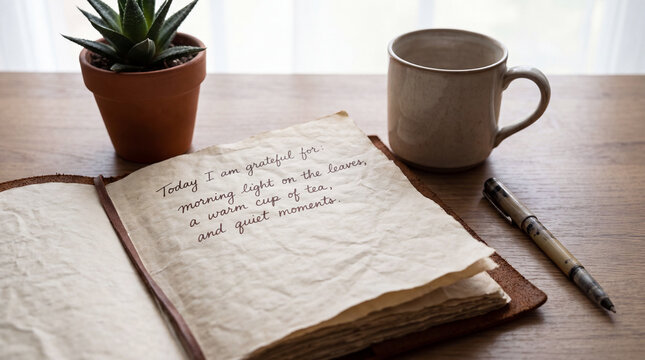 Today I am grateful for:
morning light on the leaves,
a warm cup of tea,
and quiet moments.